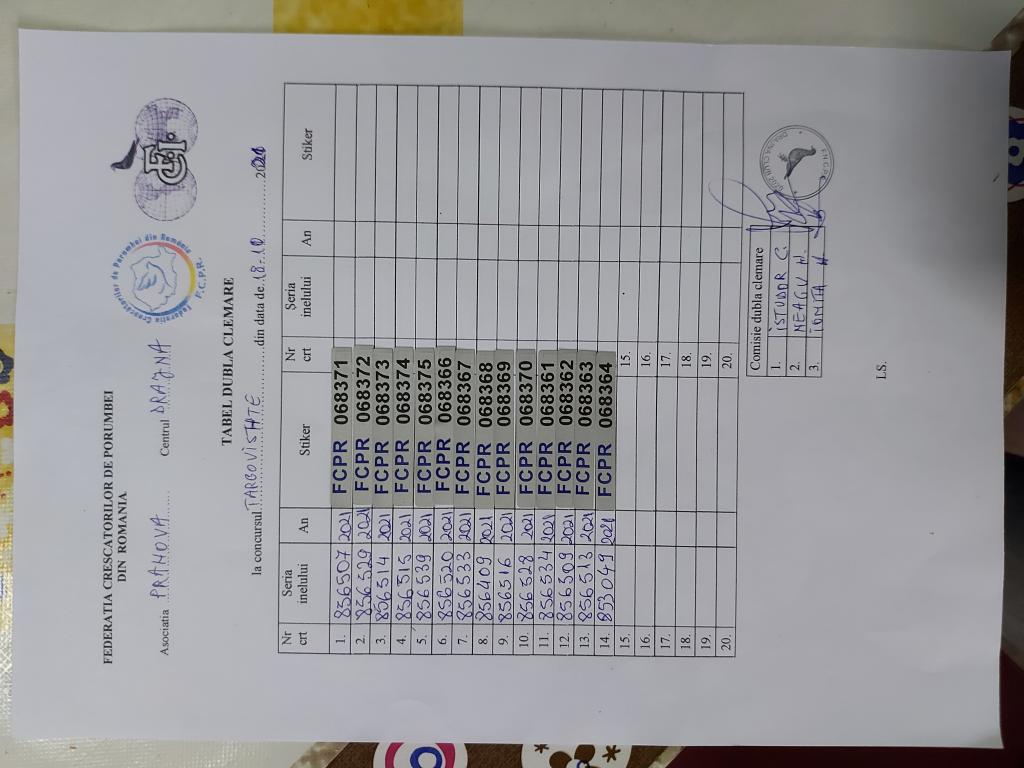 FEDERATIA CRESCATORILOR DE PORUMBEI
DIN ROMANIA
Asociatia PRAHOVA Centrul DRAJNA
Federatia Crescătorilor de Porumbei din România
F.C.P.R.
FCI
TABEL DUBLA CLEMARE
la concursul TARGOVISHTE din data de 18.10 2021
Nr crt Seria inelului An Stiker Nr crt Seria inelului An Stiker
1. 856507 2021 FCPR 068371
2. 856529 2021 FCPR 068372
3. 856514 2021 FCPR 068373
4. 856515 2021 FCPR 068374
5. 856539 2021 FCPR 068375
6. 856520 2021 FCPR 068366
7. 856533 2021 FCPR 068367
8. 856409 2021 FCPR 068368
9. 856516 2021 FCPR 068369
10. 856528 2021 FCPR 068370
11. 856534 2021 FCPR 068361
12. 856509 2021 FCPR 068362
13. 856513 2021 FCPR 068363
14. 853049 2021 FCPR 068364
15. 15.
16. 16.
17. 17.
18. 18.
19. 19.
20. 20.
Comisie dubla clemare
1. ISTUDOR C.
2. NEAGU N.
3. IONITA N.
LS.